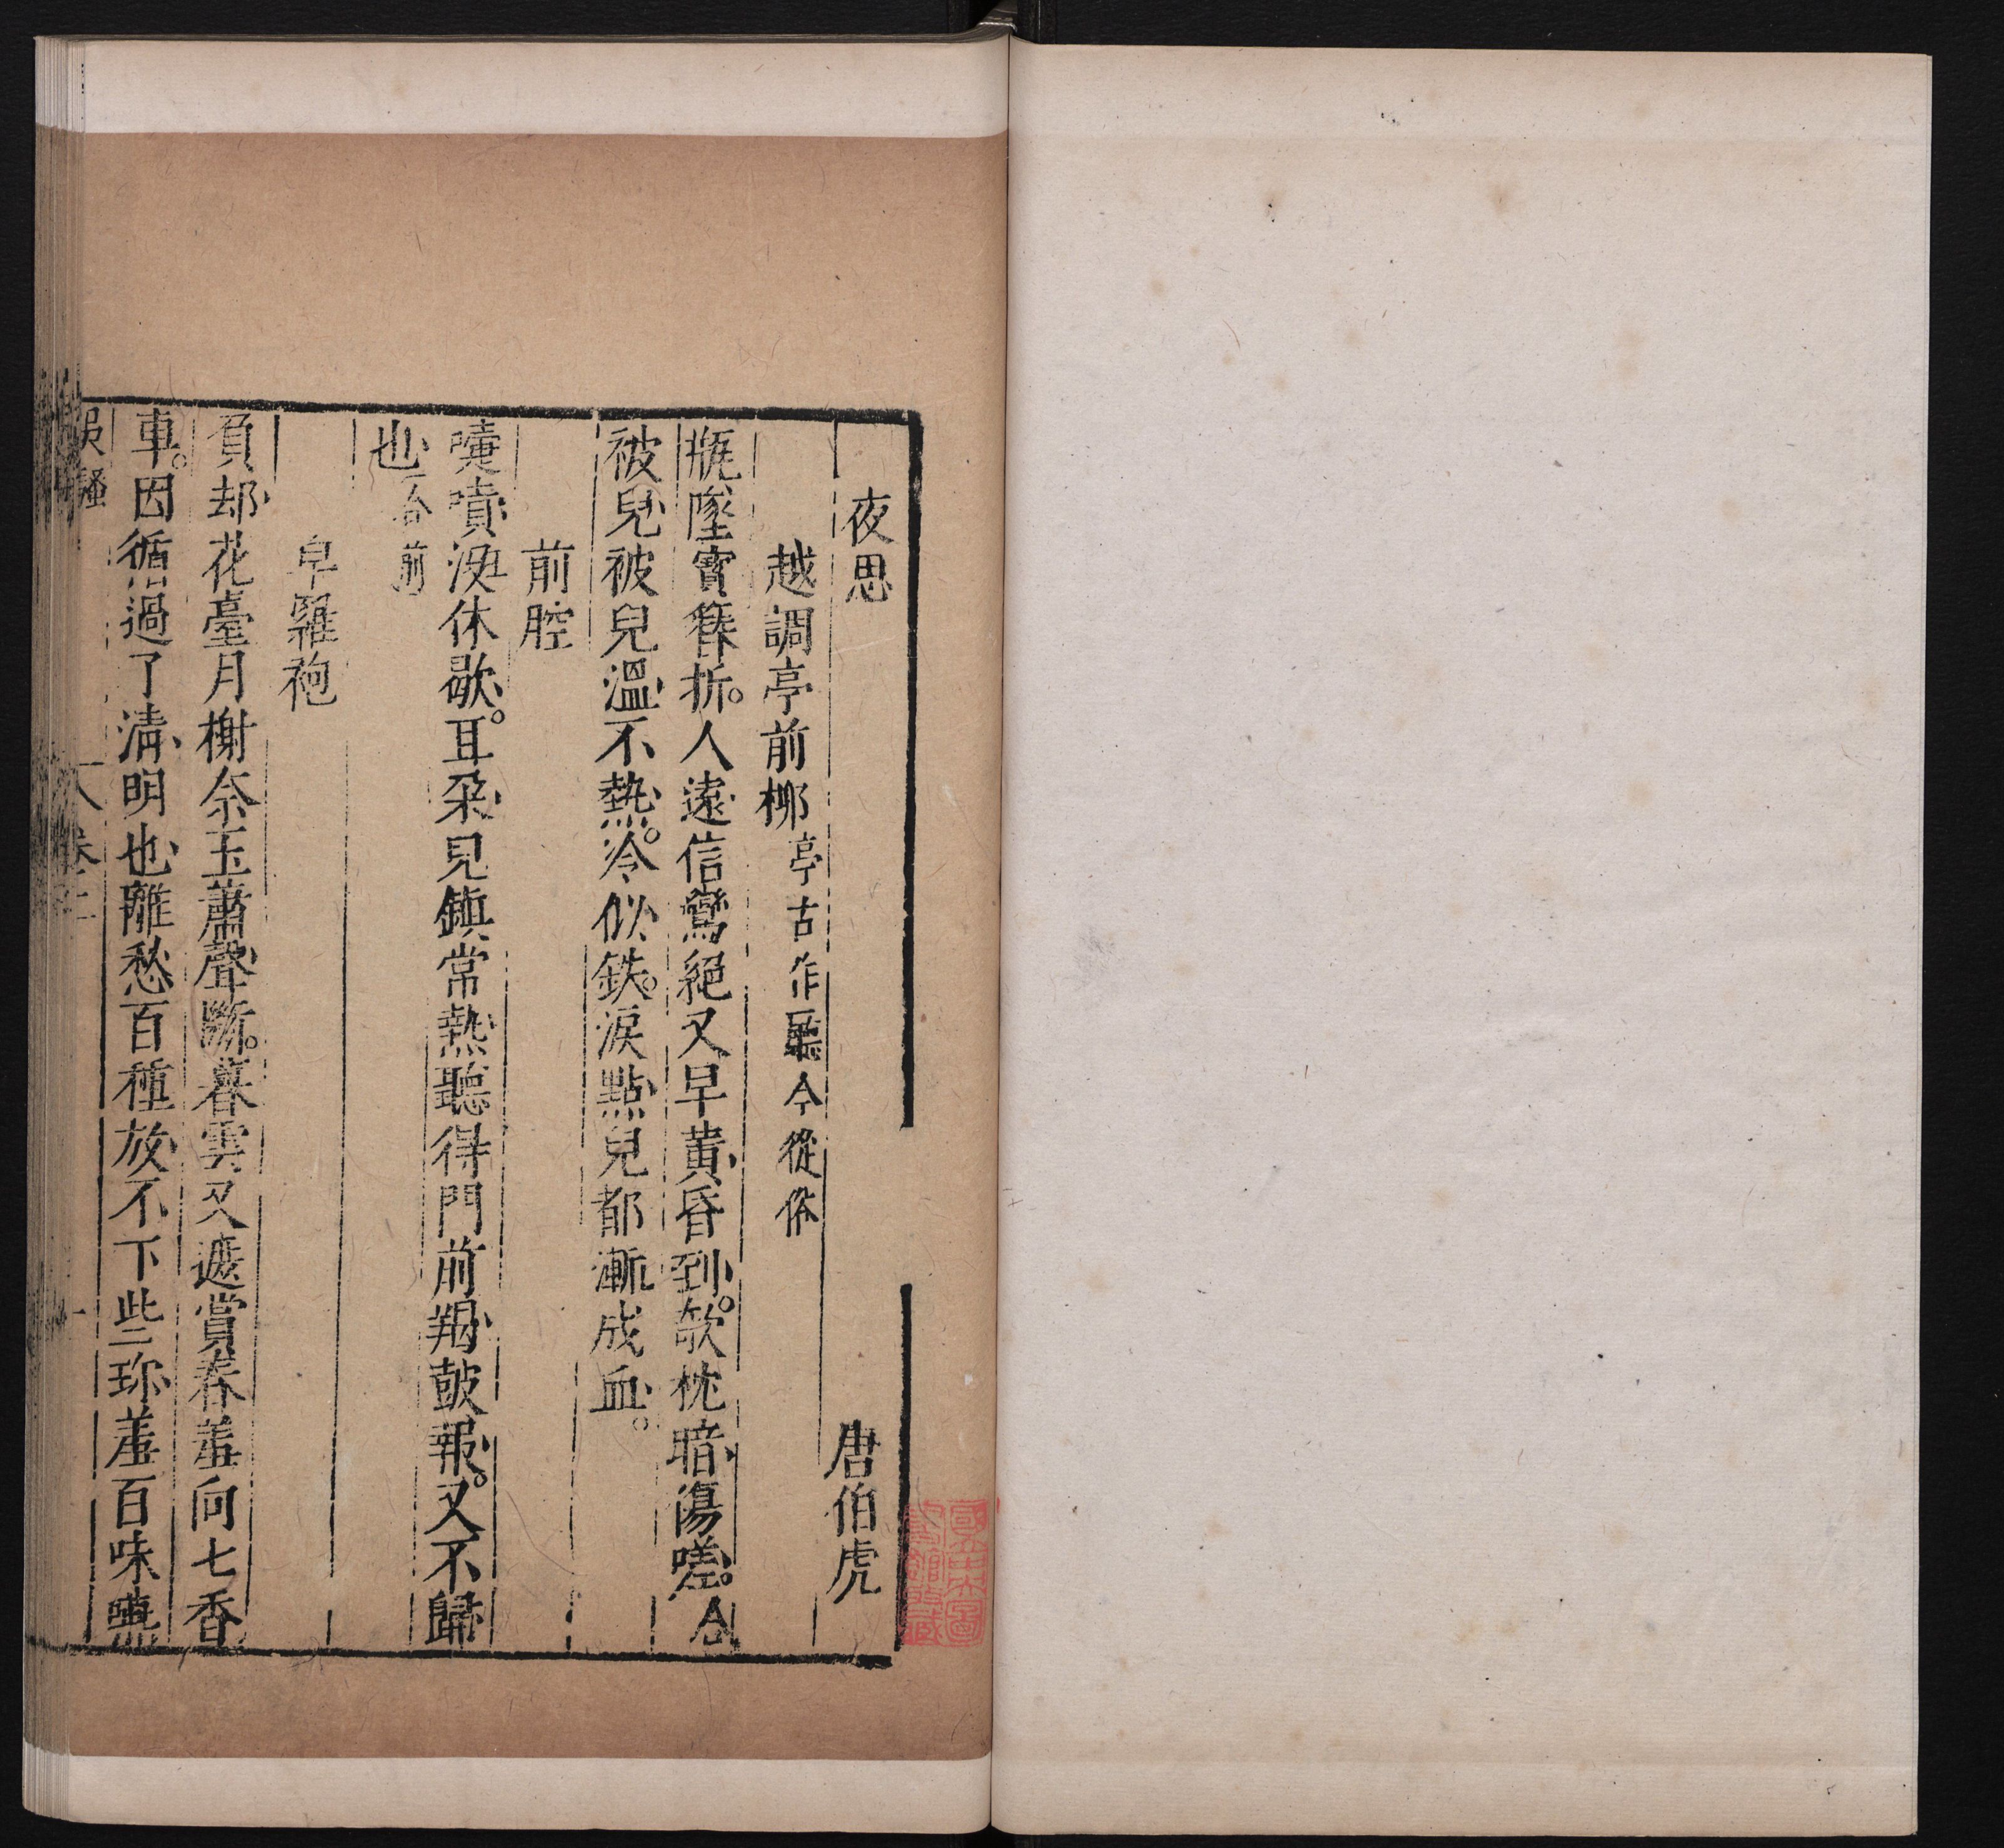 夜思　唐伯虎
越調亭前柳 亭古作廳今從俗
瓶墜寶簪折。人遠信鸞絕又早黃昏到。欹枕暗傷嗟。合
被兒被兒溫不熱。冷似鉄。淚點兒都漸成血。
前腔
嚏噴没休歇。耳朵兒鎮常熱聽得門前羯鼓報。又不歸
也 合前
皂羅袍
負却花臺月榭奈玉簫聲斷。暮雲又遮賞春羞向七香
車。因循過了清明也離愁百種放不下些珍羞百味嚥
卷二
國立中央圖書館收藏